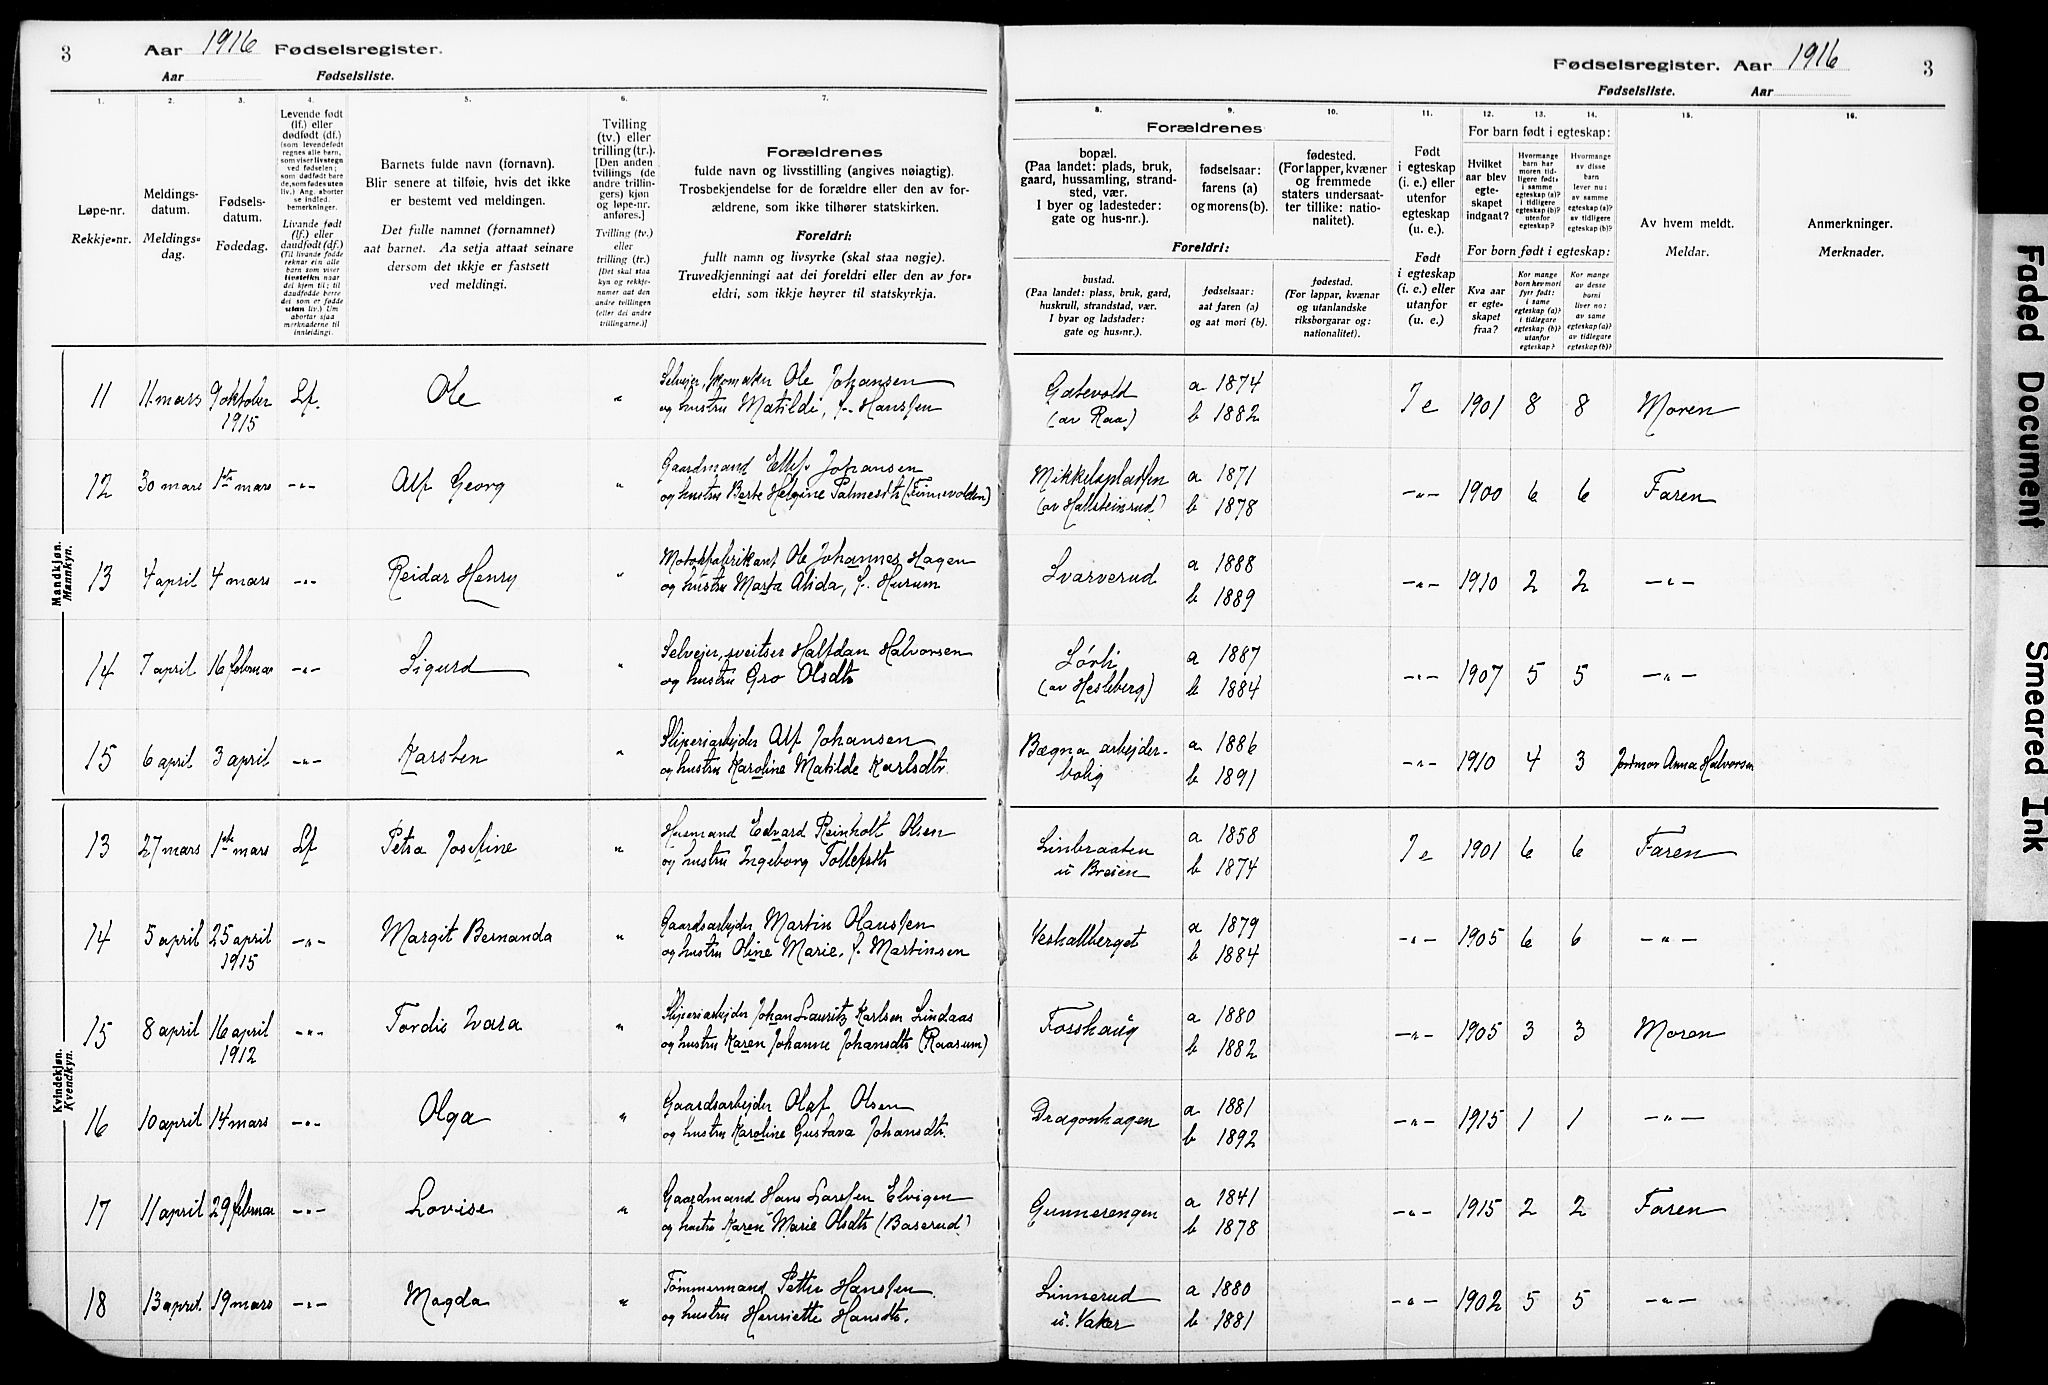 3 Aar 1916 Fødselsregister.
Aar Fødselsliste.
1. 2. 3. 4. 5. 6. 7.
Løpe-nr.
Rekkje-nr.
Meldings-
datum.
Meldings-
dag.
Fødsels-
datum.
Fødedag.
Levende født
(lf.) eller
dødfødt (df.)
(som levendefødt
regnes alle barn,
som viser livstegn
ved fødselen;
som dødfødt bare
de, som fødes uten
liv.) Ang. aborter
se indled.
bemerkninger.
Livande født
(lf.) eller
daudfødt (df.)
(Til livande fødde
reknar ein alle
born som viser
livsteikn naar
dei kjem til; til
daudfødde berre
dei som er fødde
utan liv.) Um
abortar sjaa
merknaderne til
innleidingi.
Barnets fulde navn (fornavn).
Blir senere at tilføie, hvis det ikke
er bestemt ved meldingen.
Det fulle namnet (fornamnet)
aat barnet. Aa setja attaat seinare
dersom det ikkje er fastsett
ved meldingi.
Tvilling
(tv.) eller
trilling (tr.).
[Den anden
tvillings (de
andre trillin-
gers) kjøn
og løpe-nr.
anføres.]
Tvilling (tv.)
eller
trilling (tr.)
[Det skal staa
kyn og rekkje-
numer aat den
andre tvillingen
(eller dei andre
trillingarne.)]
Forældrenes
fulde navn og livsstilling (angives nøiagtig).
Trosbekjendelse for de forældre eller den av for-
ældrene, som ikke tilhører statskirken.
Foreldri:
fullt namn og livsyrke (skal staa nøgje).
Truvedkjenningi aat dei foreldri eller den av for-
eldri, som ikkje høyrer til statskyrkja.
Mandkjøn.
Mannkyn.
11 11 mars 9 oktober 1915 Lf. Ole " Selveier, skomaker Ole Johansen
og hustru Matilde, f. Hanssen
12 30 mars 1ste mars -"- Alf Georg " Gaardmand Ellef Johansen
og hustru Berte Helgine Palmesdtr (Finnevolden)
13 4 april 4 mars -"- Reidar Henry " Motorfabrikant Ole Johannes Hagen
og hustru Marta Alida, f. Hurum
14 7 april 16 februar -"- Sigurd " Selveier, sveitser Halfdan Halvorsen
og hustru Gro Olsdtr
15 6 april 3 april -"- Karsten " Sliperiarbeider Alf Johansen
og hustru Karoline Matilde Karlsdtr
Kvindekjøn.
Kvendkyn.
13 27 mars 1ste mars Lf Petra Josefine " Husmand Edvard Reinholt Olsen
og hustru Ingeborg Tollefsdtr
14 5 april 25 april 1915 -"- Margit Bernanda " Gaardsarbeider Martin Hanssen
og hustru Oline Marie, f. Martinsen
15 8 april 16 april 1912 -"- Tordis Zara " Sliperiarbeider Johan Lauritz Karlsen Lindaas
og hustru Karen Johanne Johansdtr (Raasum)
16 10 april 14 mars -"- Olga " Gaardsarbeider Olaf Olsen
og hustru Karoline Gustava Johansdtr.
17 11 april 29 februar -"- Lovise " Gaardmand Hans Larssen Elvigen
og hustru Karen Marie Olsdtr (Baserud)
18 13 april. 19 mars -"- Magda " Tømmermand Petter Hanssen
og hustru Henriette Hansdtr.
Fødselsregister. Aar 1916 3
Fødselsliste. Aar
8. 9. 10. 11. 12. 13. 14. 15. 16.
Forældrenes
bopæl.
(Paa landet: plads, bruk,
gaard, hussamling, strand-
sted, vær.
I byer og ladesteder:
gate og hus-nr.).
fødselsaar:
farens (a)
og morens (b).
fødested.
(For lapper, kvæner
og fremmede
staters undersaat-
ter tillike: natio-
nalitet).
Foreldri:
bustad.
(Paa landet: plass, bruk, gard,
huskrull, strandstad, vær.
I byar og ladstader:
gate og hus-nr.).
fødselsaar:
aat faren (a)
og aat mori (b).
fødestad.
(For lappar, kvænar
og utanlandske
riksborgarar og:
nationalitet).
Født
i egteskap
(i. e.) eller
utenfor
egteskap
(u. e.).
Født
i egteskap
(i. e.) eller
utanfor
(u. e.).
For barn født i egteskap:
Hvilket
aar blev
egte-
skapet
indgaat?
Hvormange
barn har
moren tid-
ligere født,
i samme
egteskap (a)?
i tidligere
egteskap (b)?
utenfor
egteskap?
Hvormange
av disse
barn
lever nu:
av samme
egteskap (a)?
av tidligere
egteskap (b)?
For born født i egteskap:
Kva aar
er egte-
skapet
fraa?
Kor mange
born hev mori
fyrr født:
i same
egteskap (a)?
i tidlegare
egteskap (b)?
utanfor
egteskap?
Kor mange
av desse
borni
liver no:
av same
egteskap (a)?
av tidlegare
egteskap (b)?
Av hvem meldt.
Meldar.
Anmerkninger.
Merknader.
Gatevold
(av Raa) a 1874
b 1882 I e 1901 8 8 Moren
Mikkelspladsen
(av Hallsteinrud) a 1871
b 1878 -"- 1900 6 6 Faren
Svarverud a 1888
b 1889 -"- 1910 2 2 -"-
Lørli
(av Hesleberg) a 1887
b 1884 -"- 1907 5 5 -"-
Bægna arbeider-
bolig a 1886
b 1891 -"- 1910 4 3 Jordmor Anna Halvorsen
Linbraaten
u Breien a 1858
b 1874 I e 1901 6 6 Faren
Veshallberget a 1879
b 1884 -"- 1905 6 6 -"-
Fosshaug a 1880
b 1882 -"- 1905 3 3 Moren
Dragonhagen a 1881
b 1892 -"- 1915 1 1 -"-
Gunnerengen a 1841
b 1878 -"- 1915 2 2 Faren
Linnerud
u. Vaker a 1880
b 1881 -"- 1902 5 5 -"-
Faded Document
Smeared Ink